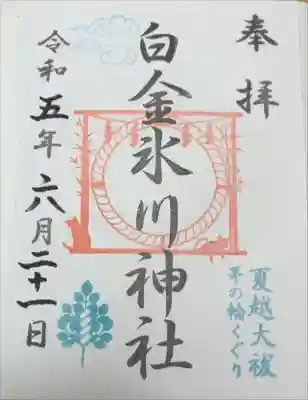 奉拝
夏越大祓
茅の輪くぐり
白金氷川神社
令和五年六月二十一日